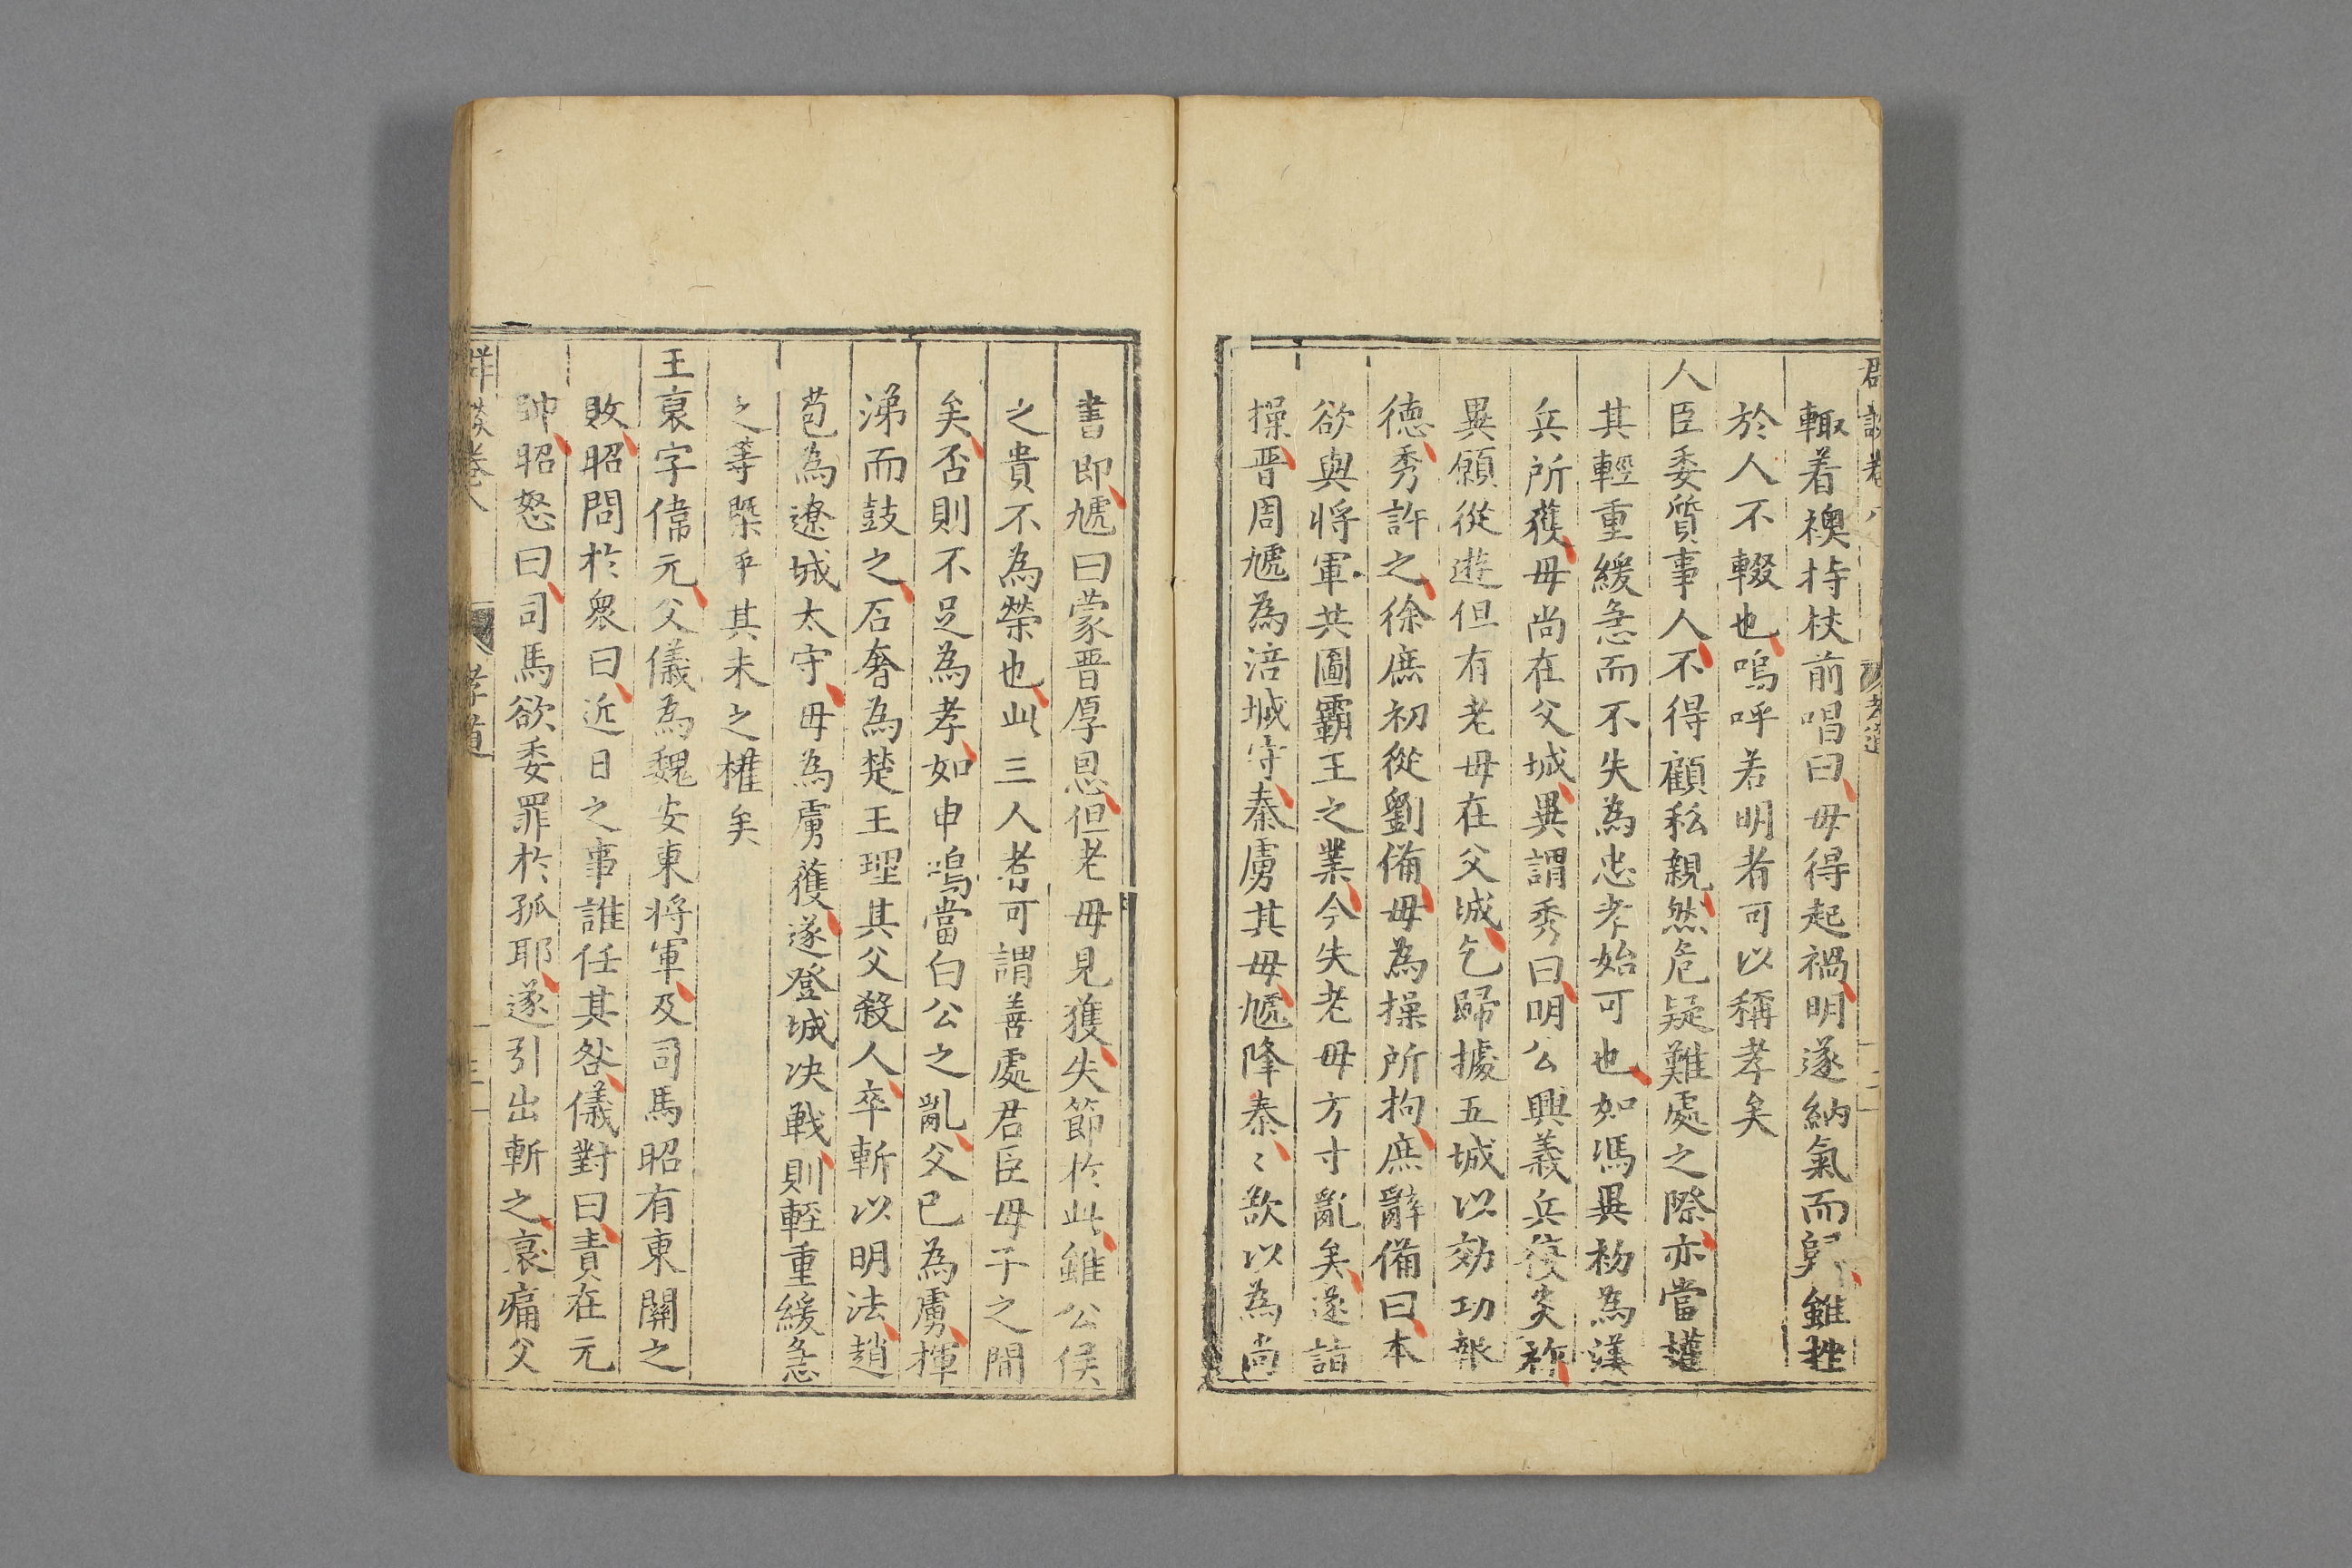 群談卷八 孝道 二
輙着襖持杖前唱曰毋得起禍明遂納氣而歸雖挫
於人不輟也嗚呼若明者可以稱孝矣
人臣委質事人不得顧私親然危疑難處之際亦當權
其輕重緩急而不失為忠孝始可也如馮異初為漢
兵所獲母尚在父城異謂秀曰明公興義兵復炎祚
異願從遊但有老母在父城乞歸據五城以効功報
德秀許之徐庶初從劉備母為操所拘庶辭備曰本
欲與將軍共圖霸王之業今失老母方寸亂矣遂詣
操晋周虓為涪城守秦虜其母虓降秦〻欲以為尚
書郎虓曰蒙晋厚恩但老母見獲失節於此雖公侯
之貴不為榮也此三人者可謂善處君臣母子之間
矣否則不足為孝如申鳴當白公之亂父已為虜揮
涕而鼓之石奢為楚王理其父殺人卒斬以明法趙
苞為遼城太守母為虜獲遂登城决戰則輕重緩急
之等槩乎其未之權矣
王裒字偉元父儀為魏安東將軍及司馬昭有東關之
敗昭問於衆曰近日之事誰任其咎儀對曰責在元
帥昭怒曰司馬欲委罪於孤耶遂引出斬之裒痛父
群談卷八 孝道 三